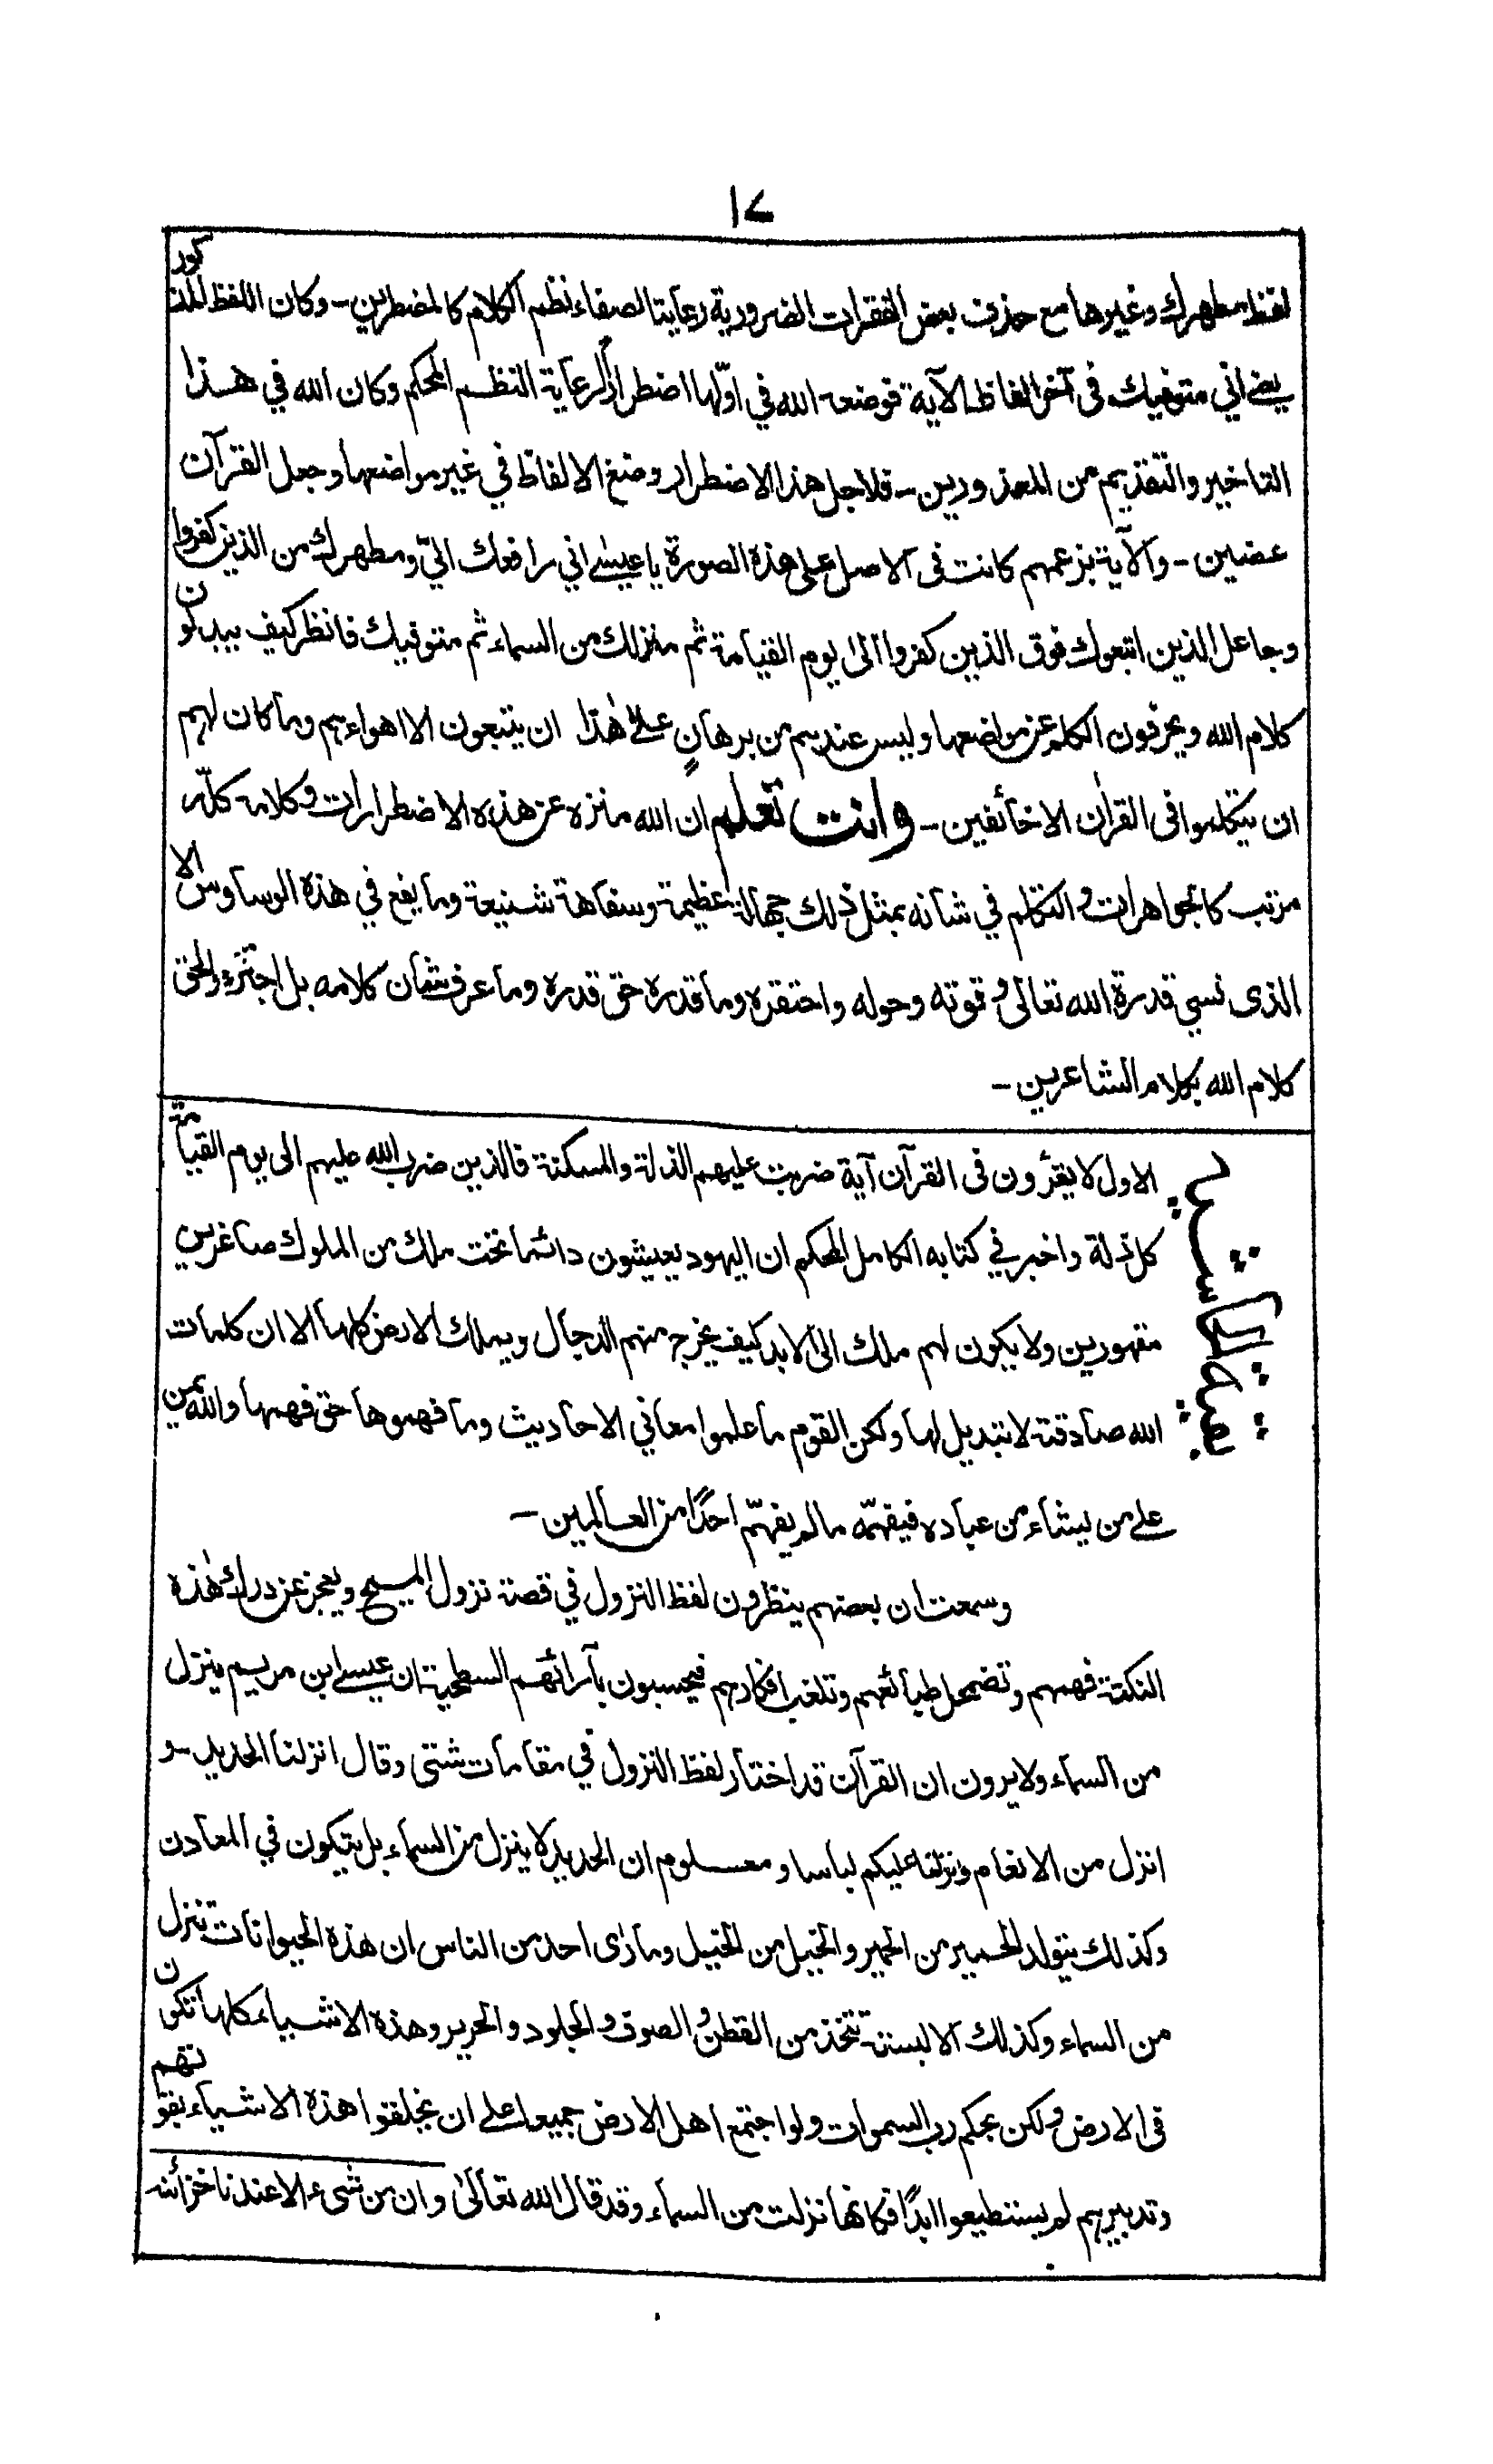 ١٧
لفظ مطهرك وغيرها مع حذف بعض الفقرات الضرورية رعايتا لصفاء نظم الكلام كالمضطرين - وكان اللفظ المذكور
يعني اني متوفيك في آخر الفاظ الآية فوضعه الله في اوّلها اضطراراً لرعاية النظم المحكم وكان الله في هذا
التاخير والتقديم من المعذورين - فلاجل هذا الاضطرار وضع الالفاظ في غير مواضعها وجعل القرآن
عضين - والآية بزعمهم كانت في الاصل على هذه الصورة يا عيسى اني رافعك اليّ ومطهرك من الذين كفروا
وجاعل الذين اتبعوك فوق الذين كفروا الى يوم القيامة ثم منزلك من السماء ثم متوفيك فانظر كيف يبدلون
كلام الله ويحرفون الكلم عن مواضعها وليس عندهم من برهانٍ على هٰذا ان يتبعون الا اهواءهم وما كان لهم
ان يتكلموا في القراٰن الا خائفين - وانت تعلم ان الله منزه عن هذه الاضطرارات وكلامه كلّه
مرتب كالجواهرات والتكلم في شانه بمثل ذٰلك جهالة عظيمة وسفاهة شنيعة وما يقع في هذه الوساوس الا
الذى نسي قدرة الله تعالى وقوته وحوله واحتقره وما قدره حق قدره وما عرف شان كلامه بل اجترء والحق
كلام الله بكلام الشاعرين -
بقية الحاشية
الاول لا يقرؤن في القرآن آية ضربت عليهم الذلة والمسكنة فالذين ضرب الله عليهم الى يوم القيامة
كل ذلة واخبر في كتابه الكامل المحكم ان اليهود يعيشون دائما تحت ملك من الملوك صاغرين
مقهورين ولا يكون لهم ملك الى الابد كيف يخرج منهم الدجال ويملك الارض كلها الا ان كلمات
الله صادقة لا تبديل لها ولكن القوم ما علموا معاني الاحاديث وما فهموها حق فهمها والله يمن
على من يشاء من عباده فيفهّمه ما لم يفهّم احدًا من العالمين -
وسمعت ان بعضهم ينظرون لفظ النزول في قصة نزول المسيح ويعجز عن درك هٰذه
النكتة فهمهم وتضمحل طبائعهم وتلغب افكارهم فيحسبون بآرائهم السطحية ان عيسى ابن مريم ينزل
من السماء ولا يرون ان القرآن قد اختار لفظ النزول في مقامات شتى وقال انزلنا الحديد - و
انزل من الانعام ونزلنا عليكم لباسا ومعلوم ان الحديد لا ينزل من السماء بل يتكون في المعادن
وكذلك يتولد الحمير من الحمير والخيل من الخيل وما رٰى احد من الناس ان هذه الحيوانات تنزل
من السماء وكذلك الالبسة تتخذ من القطن والصوف والجلود والحرير وهذه الاشياء كلها تتكون
في الارض ولكن بحكم رب السموات ولو اجتمع اهل الارض جميعا على ان يخلقوا هذه الاشياء بقوتهم
وتدبيرهم لم يستطيعوا ابدًا فكانها نزلت من السماء وقد قال الله تعالىٰ وان من شىء الا عندنا خزائنه